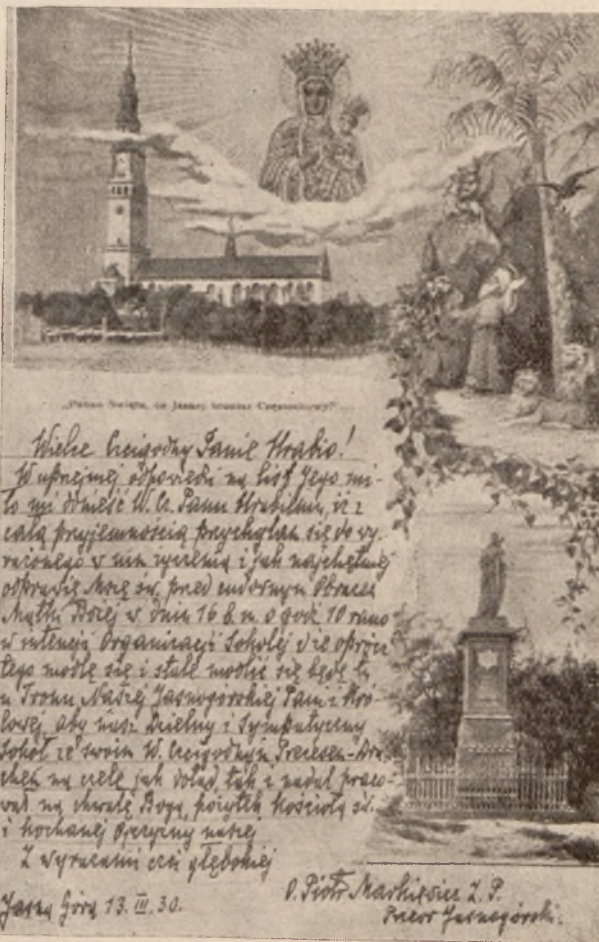 „Panno Święta, co Jasnej bronisz Częstochowy!"...
Wielce Czcigodny Panie Hrabio!
W uprzejmej odpowiedzi na list Jego mi-
ło mi donieść W. Cz. Panu Hrabiemu, iż z
całą przyjemnością przychylam się do wy-
rażonego w nim życzenia i jak najchętniej
odprawię Mszę św. przed cudownym Obrazem
Matki Bożej w dniu 16 b. m. o godz. 10 rano
w intencji Organizacji Sokolej
tego modlę się i stale modlić się będę tu
u Tronu Naszej Jasnogórskiej Pani i Kró-
lowej aby nasz Dzielny i Sympatyczny
Sokół ze swoim W. Czcigodnym Prezesem-
na czele jak dotąd tak i nadal praco-
wał na chwałę Boga, pożytek Kościoła św.
i kochanej Ojczyzny naszej
Z wyrazami czci głębokiej
Jasna Góra 13. III. 30.
O. Piotr Markiewicz Z. P.
Przeor Jasnogórski.